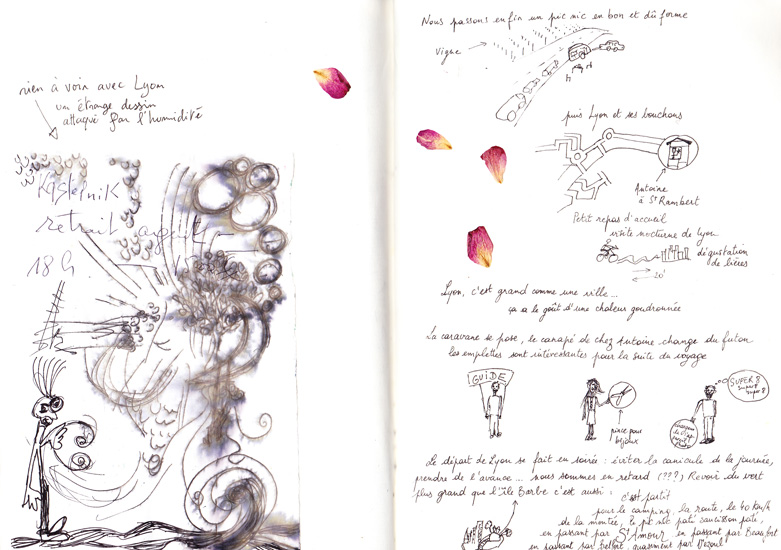 rien à voir avec Lyon
un étrange dessin
attaqué par l'humidité
retrait
18 h.
Nous passons enfin un pic nic en bon et dû forme
Vigne
puis Lyon et ses bouchons
Antoine
à St Rambert
Petit repas d'accueil
visite nocturne de Lyon
dégustation
de bières
20'
Lyon, c'est grand comme une ville ...
ça a le goût d'une chaleur goudronnée
La caravane se pose, le canapé de chez Antoine change du futon
les emplettes sont intéressantes pour la suite du voyage
GUIDE
SUPER 8
super 8
super 8
pince pour
bijoux
Le départ de Lyon se fait en soirée : éviter la canicule de la journée,
prendre de l'avance ... nous sommes en retard (???) Revoir du vert
plus grand que l'île Barbe c'est aussi :
c'est partit
pour le camping, la route, le 40 km/h
de la montée, le pic nic paté saucisson paté,
en passant par St Amour en passant par Beaufort
en passant par Belfort, quasiment par Vezoul